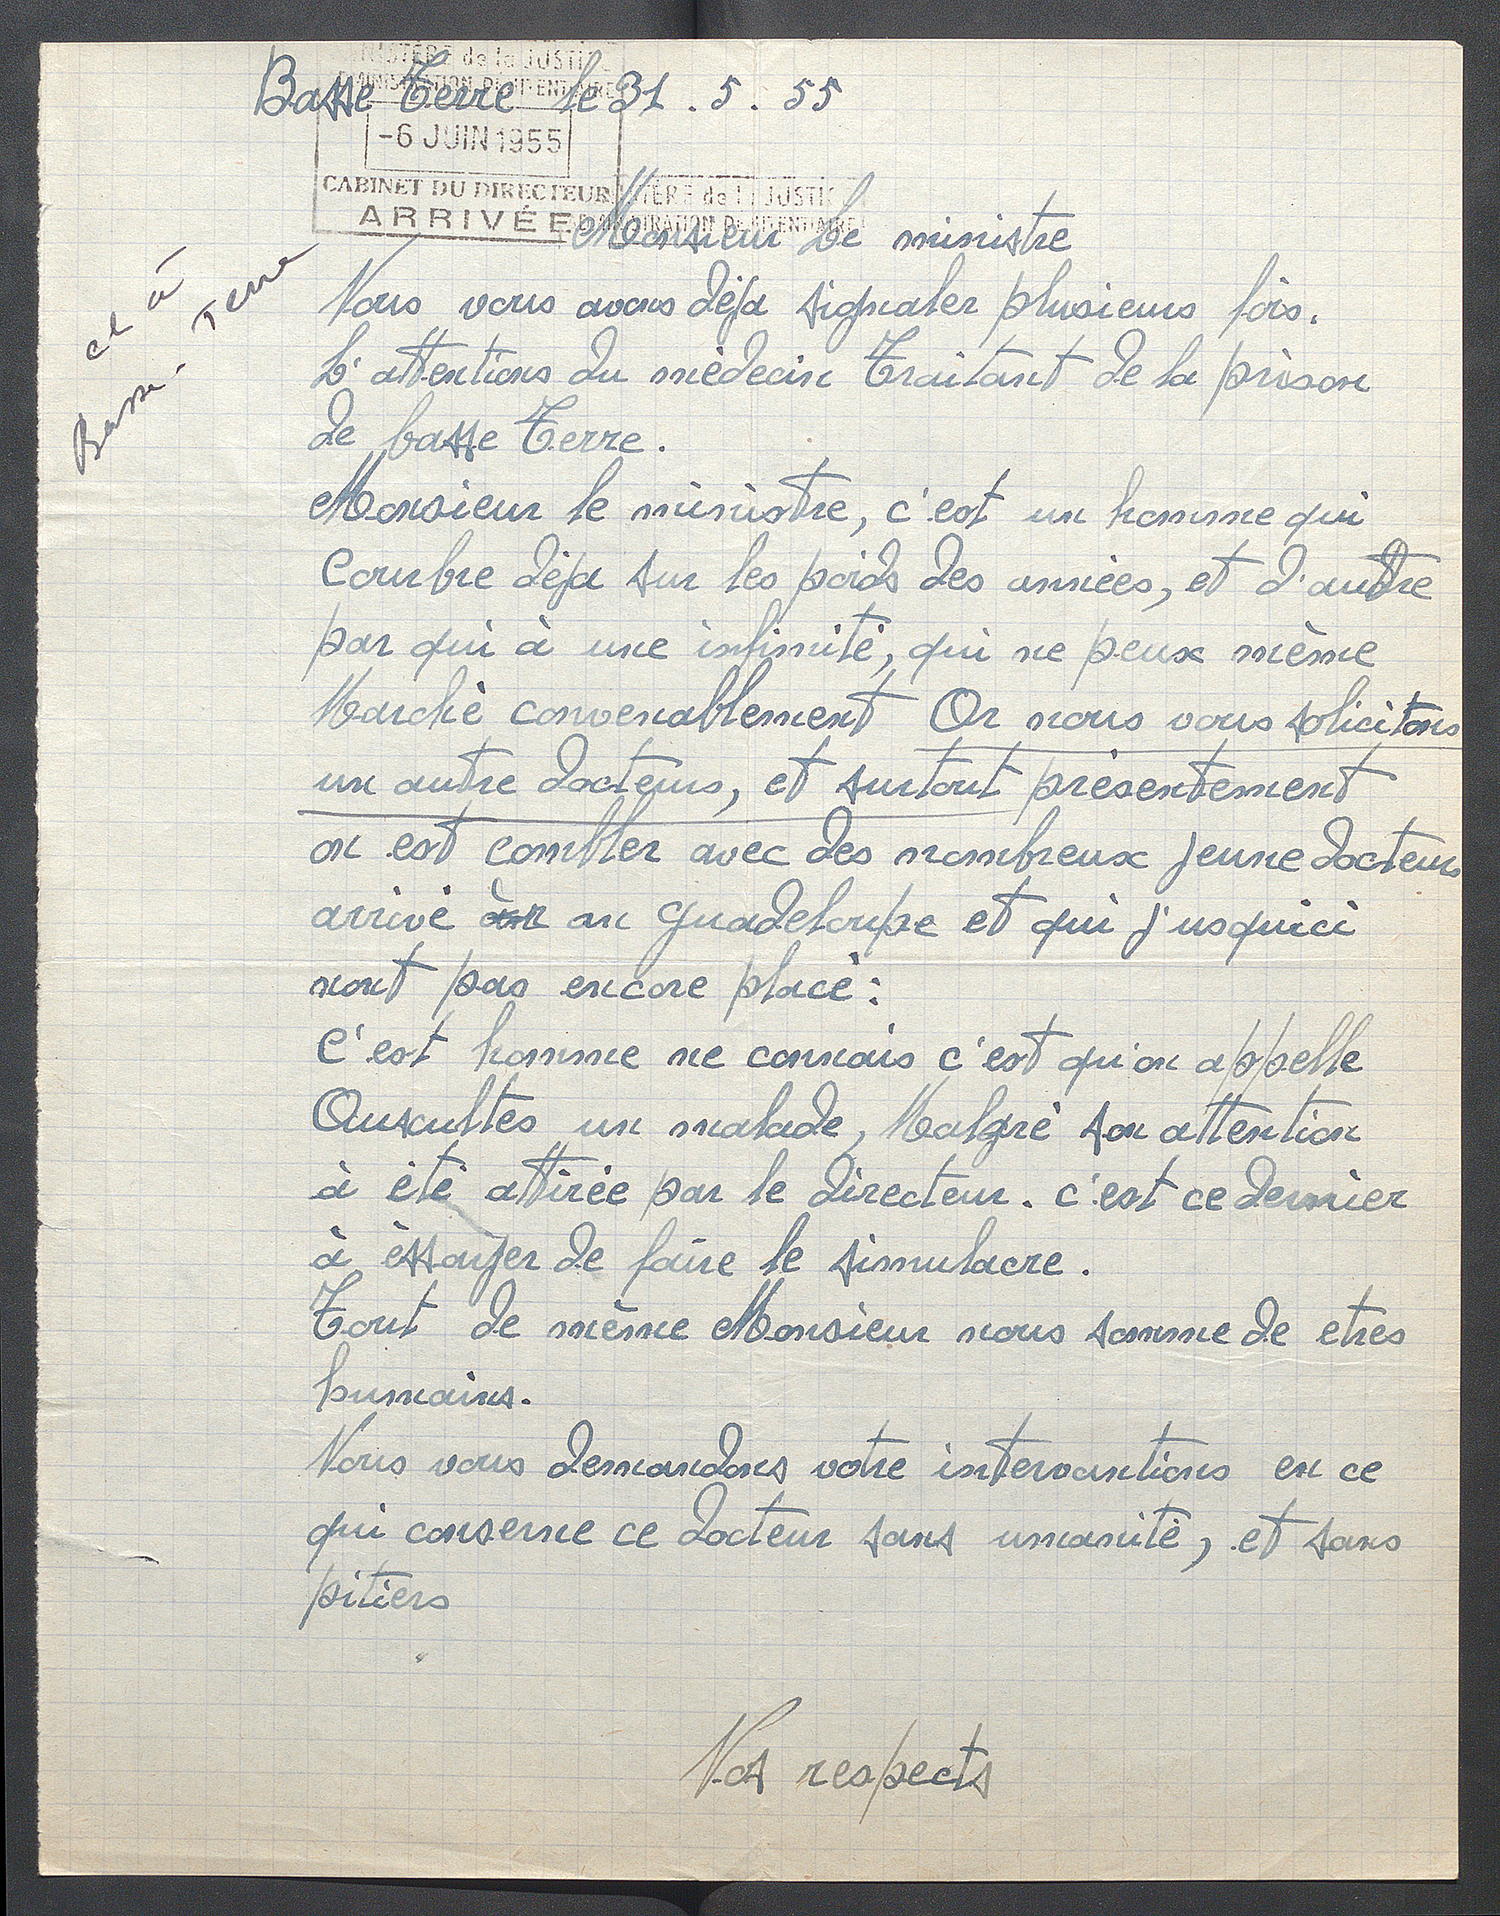 MINISTÈRE de la JUSTICE
ADMINISTRATION PÉNITENTIAIRE
Basse Terre le 31 . 5 . 55
-6 JUIN 1955
CABINET DU DIRECTEUR
ARRIVÉE
MINISTÈRE de la JUSTICE
ADMINISTRATION PÉNITENTIAIRE
Monsieur Le ministre
cl à
Basse-Terre
Nous vous avons déja signaler plusieurs fois.
L'attentions du médecin Traitant de la prison
de basse Terre.
Monsieur le ministre, c'est un homme qui
Courbre déja sur les poids des années, et d'autre
par qui à une infimité, qui ne peux même
Marché convenablement Or nous vous solicitons
un autre docteurs, et surtout présentement
on est combler avec des nombreux jeune docteurs
arrivé an guadeloupe et qui j'usquici
nont pas encore placé :
C'est homme ne connais c'est qu'on appelle
Auscultes un malade, Malgré son attention
à été attirée par le directeur. c'est ce dernier
à éssayer de faire le simulacre.
Tout de même Monsieur nous somme de etres
humains.
Nous vous demandons votre intervantions en ce
qui conserne ce docteur sans umanité, et sans
pitiers
Nos respects